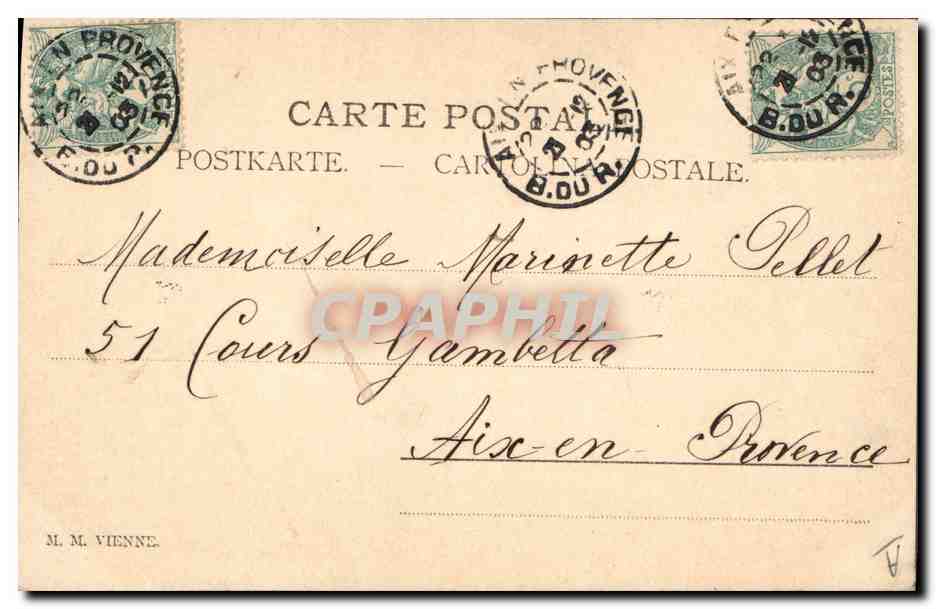 AIX-EN PROVENCE
12
03
B. DU R.
CARTE POSTALE
AIX-EN PROVENCE
12
03
B. DU R.
AIX
12
03
B. DU R.
POSTES
POSTKARTE. — CARTOLINA POSTALE.
Mademoiselle Marinette Pellet
CPAPHIL
51 Cours Gambetta
Aix-en-Provence
M. M. VIENNE.
A